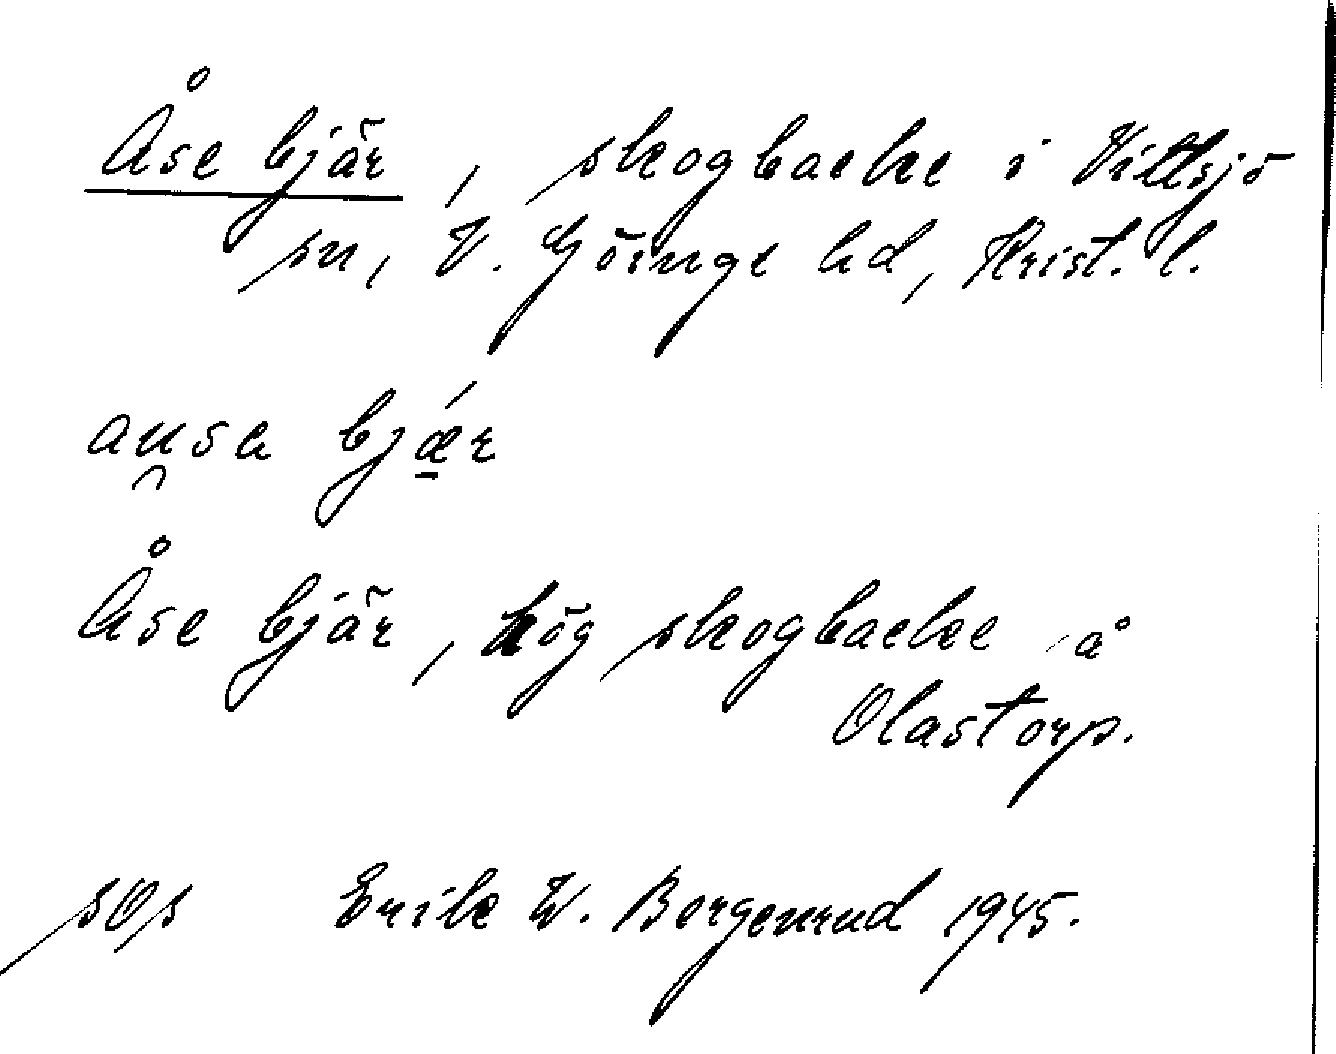 Åse bjär, skogbacke i Vittsjö
sn, V. Göinge hd, Krist. l.
au̯sa bjǽ̱r
Åse bjär, hög skogbacke å
Olastorp.
Erik W. Bergenrud 1945.